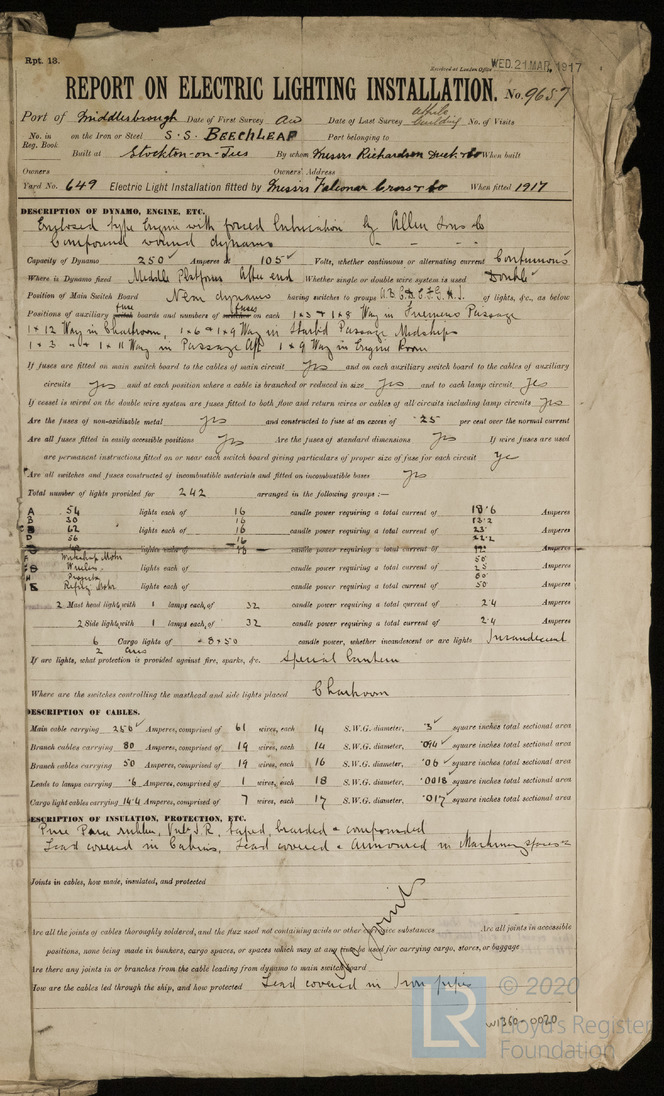 Rpt. 13.
Received at London Office WED. 21 MAR. 1917
REPORT ON ELECTRIC LIGHTING INSTALLATION. No. 9657
Port of Middlesbrough Date of First Survey Date of Last Survey while building No. of Visits
No. in Reg. Book on the Iron or Steel S.S. BEECHLEAF Port belonging to
Built at Stockton-on-Tees By whom Messrs Richardson Duck & Co When built
Owners Owners' Address
Yard No. 649 Electric Light Installation fitted by Messrs Falconar Cross & Co When fitted 1917
DESCRIPTION OF DYNAMO, ENGINE, ETC.
Enclosed type Engine with forced lubrication by Allen Sons & Co
Compound wound dynamo
Capacity of Dynamo 250 Amperes at 105 Volts, whether continuous or alternating current Continuous
Where is Dynamo fixed Middle Platform After end Whether single or double wire system is used Double
Position of Main Switch Board Near dynamo having switches to groups A B C D E F G H I of lights, &c., as below
Positions of auxiliary fuse boards and numbers of fuses on each 1 x 3 & 1 x 8 Way in Passage
1 x 12 Way in Chartroom, 1 x 6 & 1 x 9 Way in Starb'd Passage Midships
1 x 3 & 1 x 11 Way in Passage Aft 1 x 9 Way in Engine Room
If fuses are fitted on main switch board to the cables of main circuit yes and on each auxiliary switch board to the cables of auxiliary
circuits yes and at each position where a cable is branched or reduced in size yes and to each lamp circuit yes
If vessel is wired on the double wire system are fuses fitted to both flow and return wires or cables of all circuits including lamp circuits yes
Are the fuses of non-oxidisable metal yes and constructed to fuse at an excess of 25 per cent over the normal current
Are all fuses fitted in easily accessible positions yes Are the fuses of standard dimensions yes If wire fuses are used
are permanent instructions fitted on or near each switch board giving particulars of proper size of fuse for each circuit yes
Are all switches and fuses constructed of incombustible materials and fitted on incombustible bases yes
Total number of lights provided for 242 arranged in the following groups :—
A 54 lights each of 16 candle power requiring a total current of 18.6 Amperes
B 30 16 13.2
C 62 lights each of 16 candle power requiring a total current of 23 Amperes
D 56 16 22.2
lights each of 16 candle power requiring a total current of Amperes
Workshop Motor 50
G Wireless lights each of candle power requiring a total current of 25 Amperes
H
I Refrig Motor lights each of candle power requiring a total current of 50 Amperes
2 Mast head light with 1 lamps each of 32 candle power requiring a total current of 2.4 Amperes
2 Side light with 1 lamps each of 32 candle power requiring a total current of 2.4 Amperes
6 Cargo lights of 8 x 50 candle power, whether incandescent or arc lights Incandescent
2 arcs
If arc lights, what protection is provided against fire, sparks, &c. Special Lantern
Where are the switches controlling the masthead and side lights placed Chartroom
DESCRIPTION OF CABLES.
Main cable carrying 250 Amperes, comprised of 61 wires, each 14 S.W.G. diameter, .3 square inches total sectional area
Branch cables carrying 80 Amperes, comprised of 19 wires, each 14 S.W.G. diameter, .094 square inches total sectional area
Branch cables carrying 50 Amperes, comprised of 19 wires, each 16 S.W.G. diameter, .06 square inches total sectional area
Leads to lamps carrying .6 Amperes, comprised of 1 wires, each 18 S.W.G. diameter, .0018 square inches total sectional area
Cargo light cables carrying 14.4 Amperes, comprised of 7 wires, each 17 S.W.G. diameter, .017 square inches total sectional area
DESCRIPTION OF INSULATION, PROTECTION, ETC.
Pure Para rubber, Vulc. I.R. taped, braided & compounded
Lead covered in Cabins, Lead covered & armoured in Machinery spaces
Joints in cables, how made, insulated, and protected
No Joints
Are all the joints of cables thoroughly soldered, and the flux used not containing acids or other corrosive substances Are all joints in accessible
positions, none being made in bunkers, cargo spaces, or spaces which may at any time be used for carrying cargo, stores, or baggage
Are there any joints in or branches from the cable leading from dynamo to main switch board
How are the cables led through the ship, and how protected Lead covered in Iron pipes
W1360-0020
© 2020
LR
Lloyd's Register
Foundation